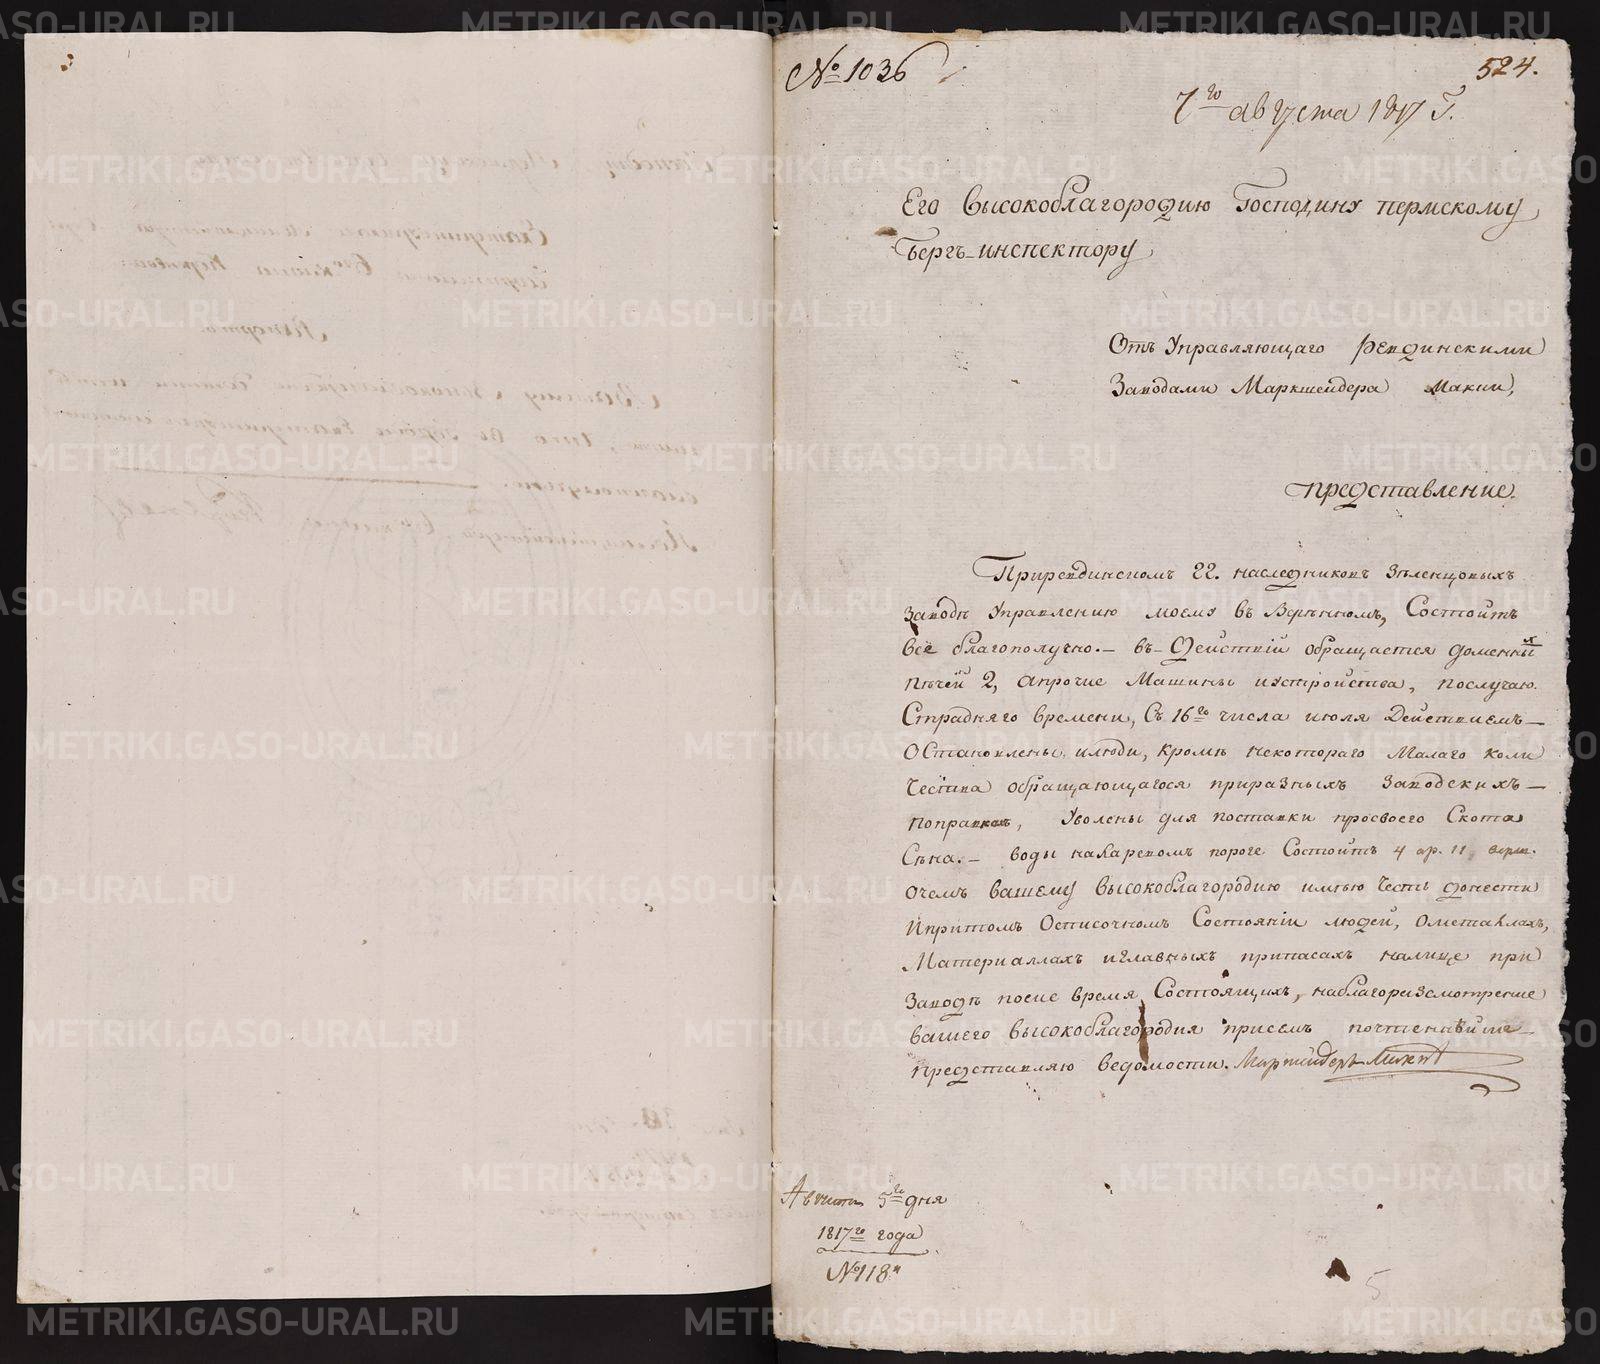 № 1036
524.
7го августа 1817 г.
Его высокоблагородию Господину пермскому
Бергъ-инспектору
Отъ Управляющаго Ревдинскими
Заводами Маркшейдера
представление.
Приревдинскомъ гг. наследниковъ Зеленцовыхъ
заводе Управлению моему въ Верѣнномъ, Состоитъ
все благополучно. – въ-Действiи обращается доменных
печей 2, апрочие Машины иустройства, послучаю
Страдняго времени, Съ 16го числа июля Действиемъ –
Остановлены илюди, кромѣ некотораго Малаго коли
чества обращающагося приразныхъ заводскихъ –
поправкахъ, Уволены для поставки просвоего Скота
Сѣна. – воды наларевомъ пороге Состоитъ 4 ар. 11 верш.
очемъ вашему высокоблагородию имѣю честь донести
ипритомъ Осписочномъ Состоянiи людей, ометаллахъ,
Материаллахъ иглавныхъ припасахъ налице при
Заводѣ посие время Состоящихъ, наблагоразсмотрение
вашего высокоблагородия присемъ почтеннѣйше
представляю ведомости. Маркшейдеръ
Августа 5го дня
1817го года
№ 118
5
METRIKI.GASO-URAL.RU